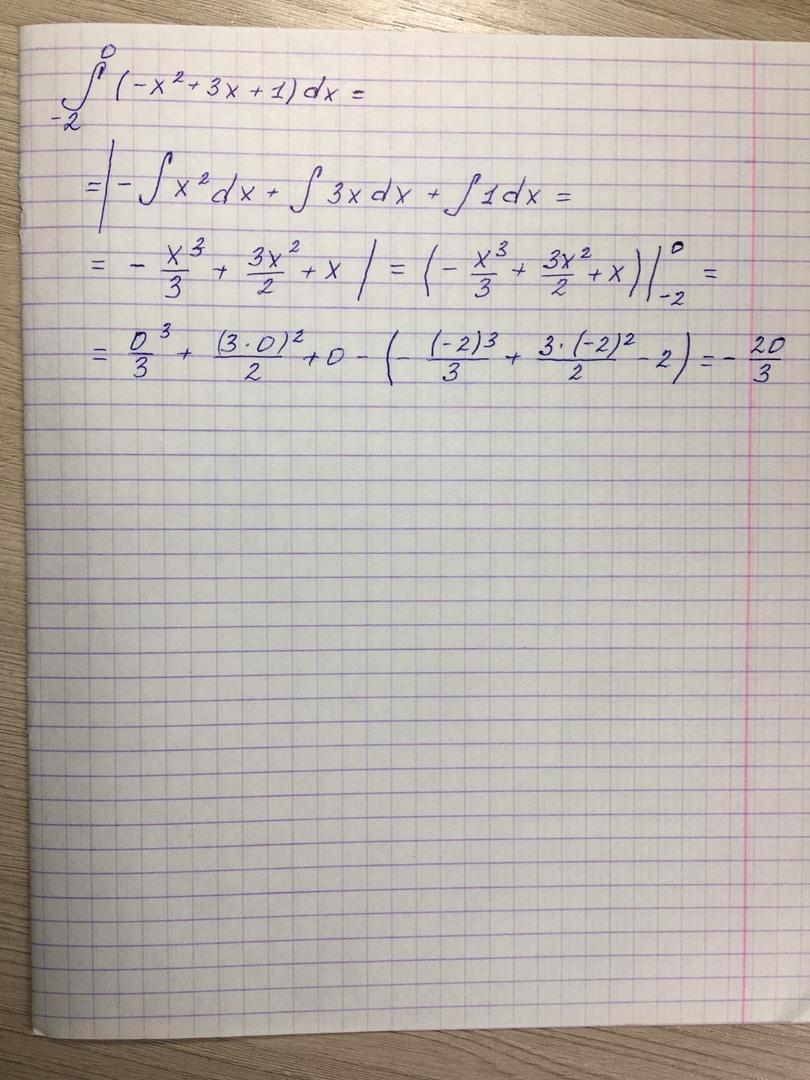 ∫₋₂⁰ (-x² + 3x + 1) dx =
= | - ∫ x² dx + ∫ 3x dx + ∫ 1 dx =
= - x³/3 + 3x²/2 + x | = (- x³/3 + 3x²/2 + x) |₋₂⁰ =
= 0³/3 + (3·0)²/2 + 0 - (- (-2)³/3 + 3·(-2)²/2 - 2) = - 20/3